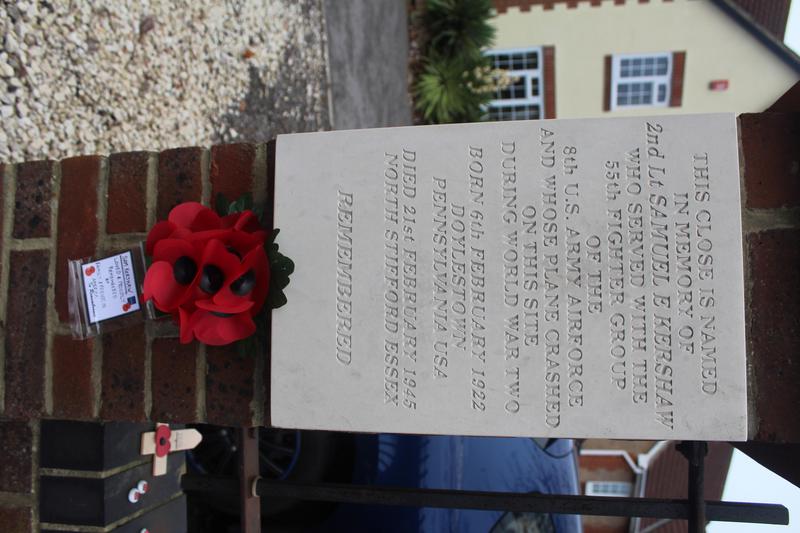 THIS CLOSE IS NAMED
IN MEMORY OF
2nd Lt SAMUEL E KERSHAW
WHO SERVED WITH THE
55th FIGHTER GROUP
OF THE
8th U.S. ARMY AIRFORCE
AND WHOSE PLANE CRASHED
ON THIS SITE
DURING WORLD WAR TWO
BORN 6th FEBRUARY 1922
DOYLESTOWN
PENNSYLVANIA USA
DIED 21st FEBRUARY 1945
NORTH STIFFORD ESSEX
REMEMBERED